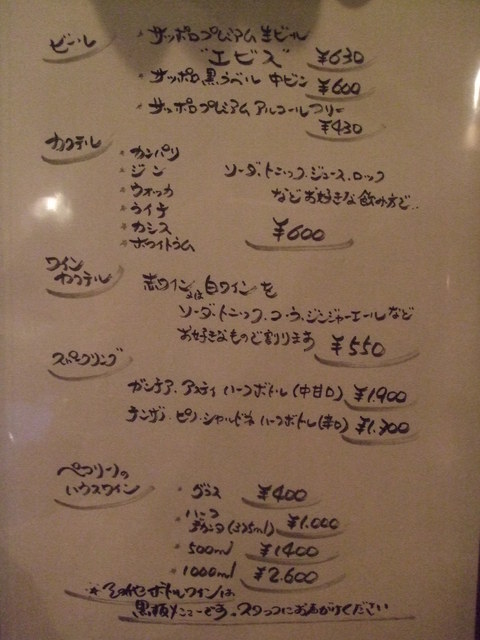 ビール
・サッポロプレミアム生ビール
"エビス" ¥630
・サッポロ黒ラベル 中ビン ¥600
・サッポロプレミアム アルコールフリー
¥430
カクテル
・カンパリ
・ジン
・ウォッカ
・ライチ
・カシス
・ホワイトラム
ソーダ、トニック、ジュース、ロック
などお好きな飲み方で..
¥600
ワイン
カクテル
赤ワイン又は白ワインを
ソーダ、トニック、コーラ、ジンジャーエールなど
お好きなもので割ります ¥550
スパークリング
ガンチア・アスティ ハーフボトル(中甘口) ¥1,900
チンザノ・ピノ・シャルドネ ハーフボトル(辛口) ¥1,700
ペコリーノの
ハウスワイン
・グラス ¥400
・ハーフ
デカンタ(375ml) ¥1,000
・500ml ¥1400
・1000ml ¥2,600
＊その他ボトルワインは
黒板メニューです。スタッフにお声がけください